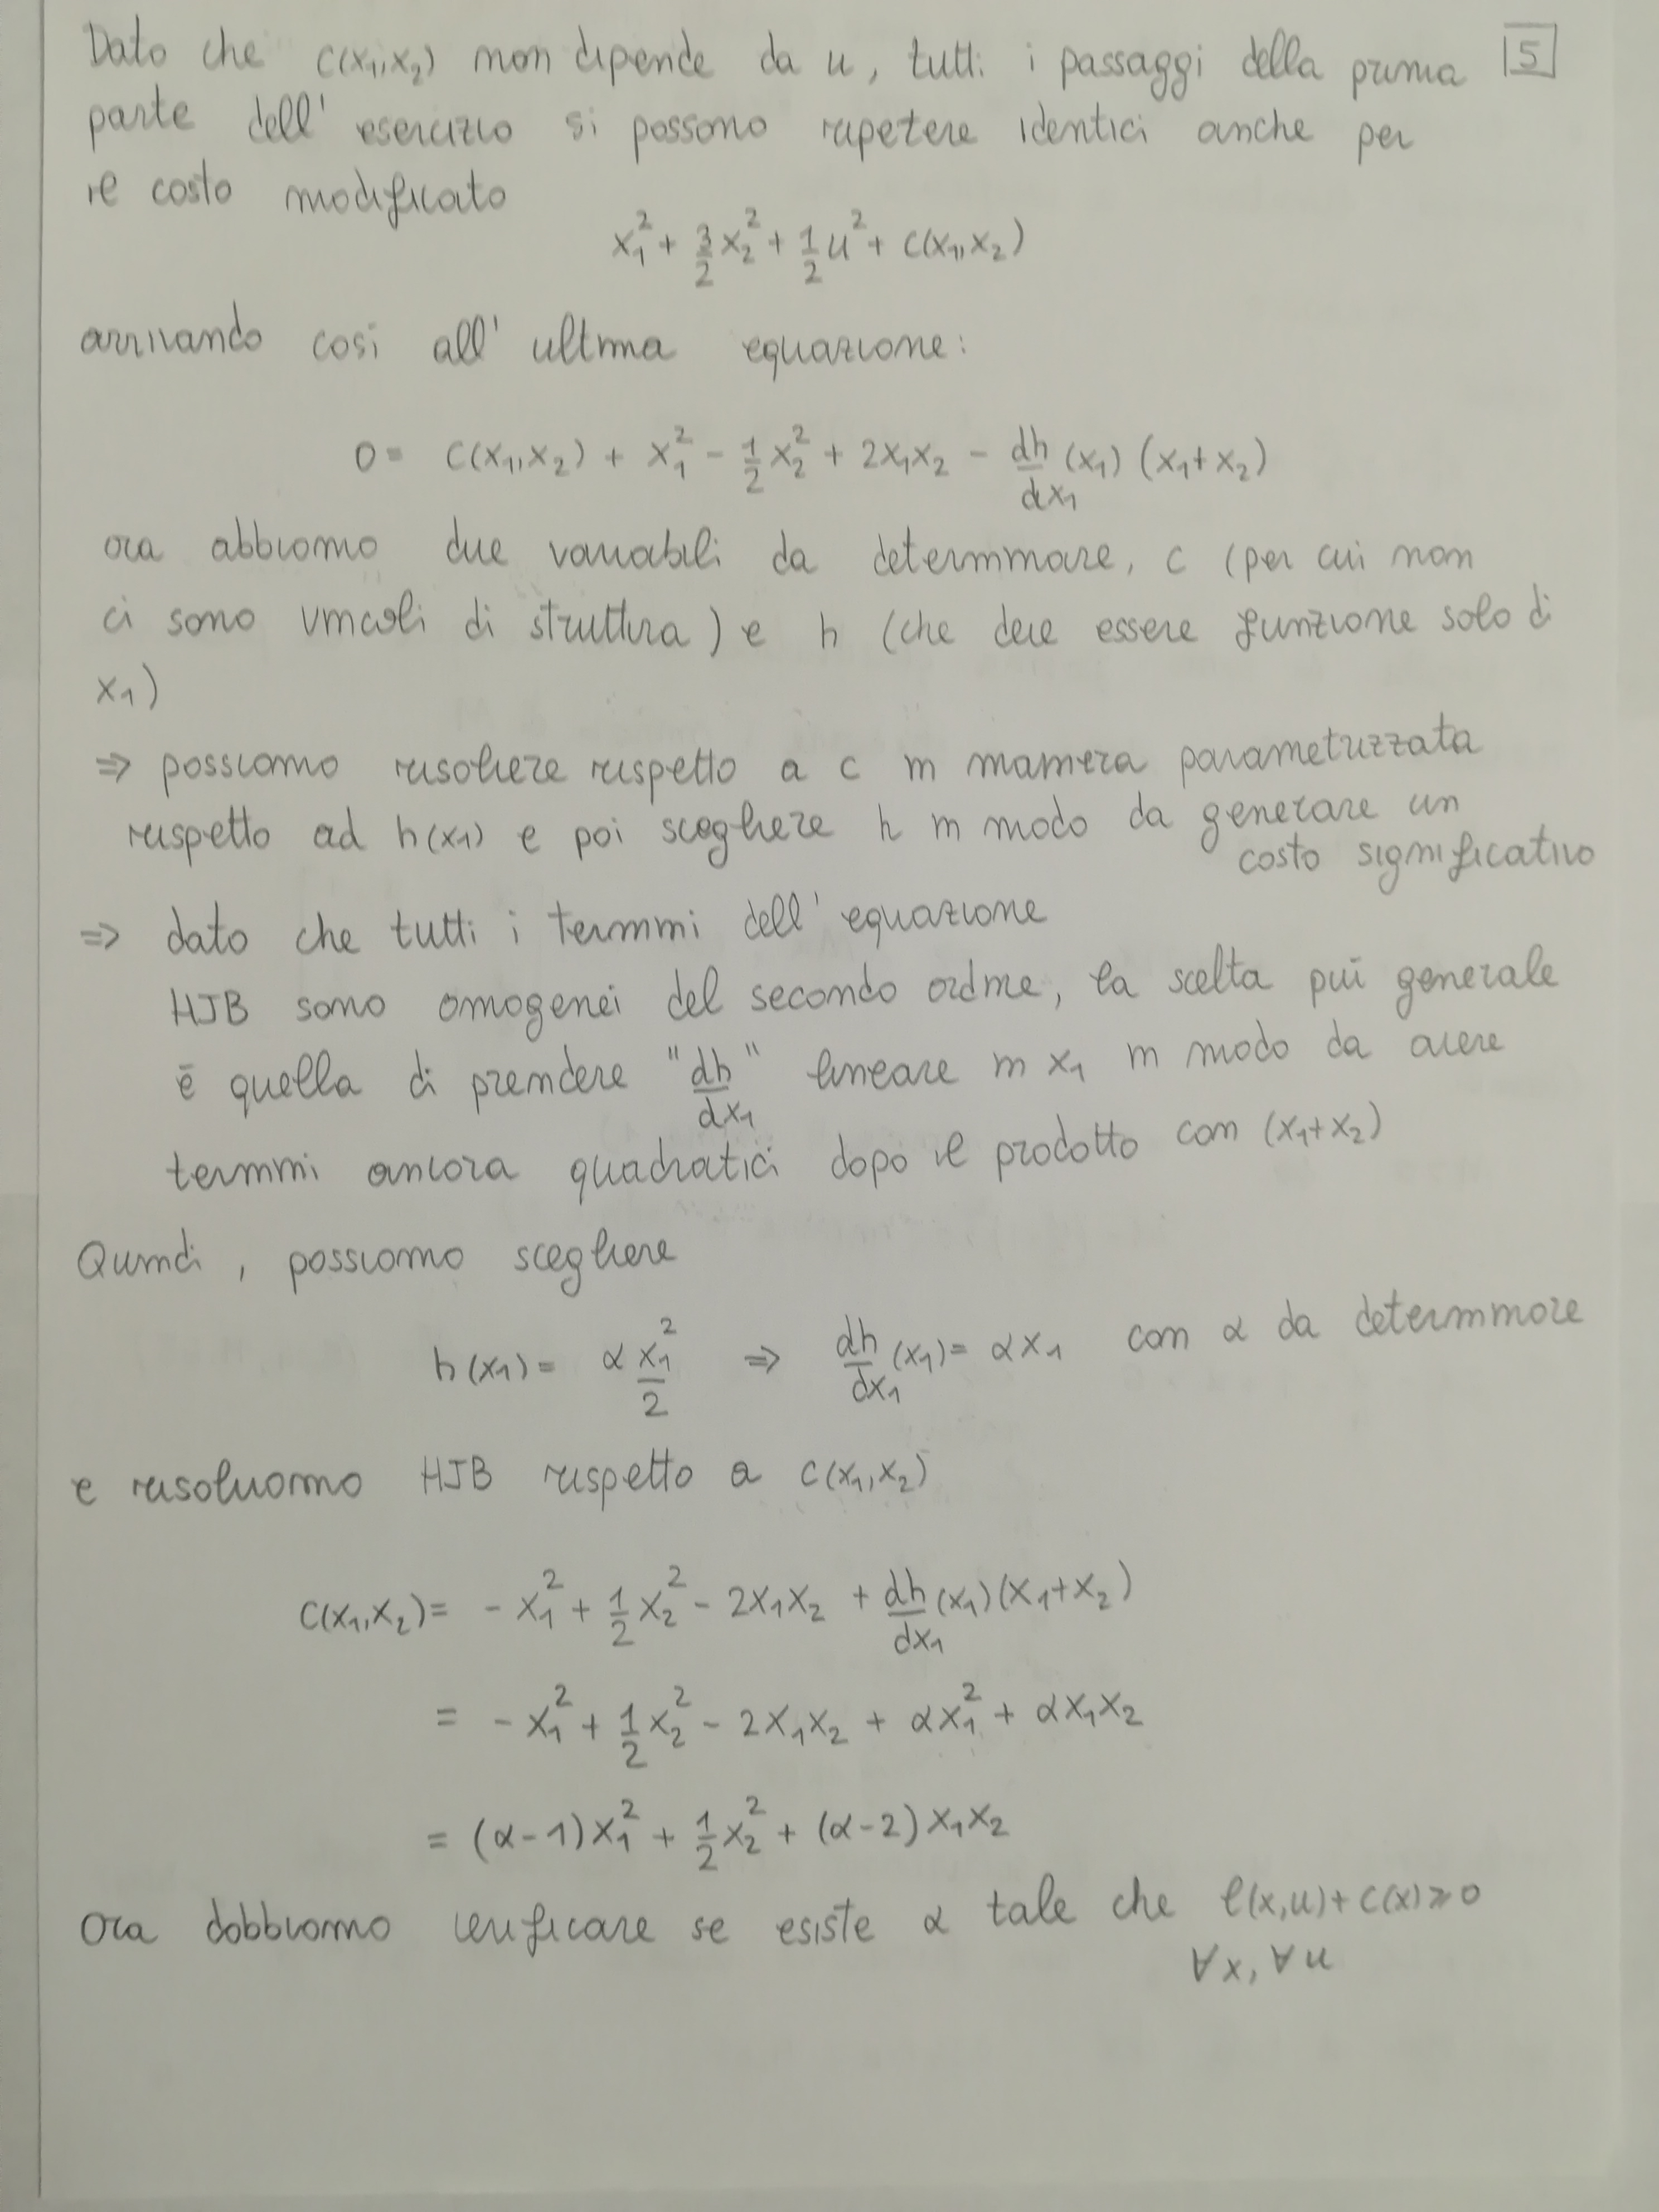 Dato che c(x₁,x₂) non dipende da u, tutti i passaggi della prima 5
parte dell' esercizio si possono ripetere identici anche per
il costo modificato
x₁² + 3/2 x₂² + 1/2 u² + c(x₁,x₂)
arrivando così all' ultima equazione:
0 = c(x₁,x₂) + x₁² - 1/2 x₂² + 2x₁x₂ - dh/dx₁ (x₁) (x₁+x₂)
ora abbiamo due variabili da determinare, c (per cui non
ci sono vincoli di struttura) e h (che deve essere funzione solo di
x₁)
⇒ possiamo risolvere rispetto a c in maniera parametrizzata
rispetto ad h(x₁) e poi scegliere h in modo da generare un
costo significativo
⇒ dato che tutti i termini dell' equazione
HJB sono omogenei del secondo ordine, la scelta più generale
è quella di prendere "dh/dx₁" lineare in x₁ in modo da avere
termini ancora quadratici dopo il prodotto con (x₁+x₂)
Quindi, possiamo scegliere
h(x₁) = α x₁²/2 ⇒ dh/dx₁ (x₁) = αx₁ con α da determinare
e risolviamo HJB rispetto a c(x₁,x₂)
c(x₁,x₂) = - x₁² + 1/2 x₂² - 2x₁x₂ + dh/dx₁ (x₁)(x₁+x₂)
= - x₁² + 1/2 x₂² - 2x₁x₂ + αx₁² + αx₁x₂
= (α-1)x₁² + 1/2 x₂² + (α-2)x₁x₂
Ora dobbiamo verificare se esiste α tale che ℓ(x,u) + c(x) ⩾ 0
∀x, ∀u